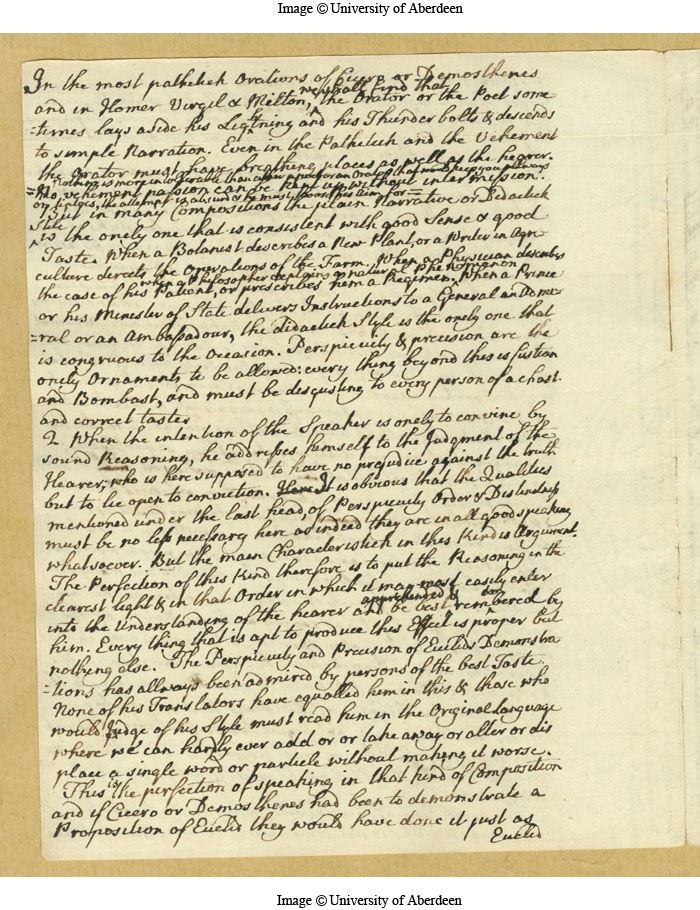 Image © University of Aberdeen
In the most pathetick Orations of Cicero or Demosthenes
we shall find that
and in Homer Virgil & Milton, the Orator or the Poet some
=times lays aside his Lightning and his Thunder bolts & descends
to simple Narration. Even in the Pathetick and the Vehement
the Orator must have breathing places as well as the hearer.
Nothing is more intolerable than an Orator that would keep you always
=No vehement passion can be kept up without intermission.
on tiptoes, the attempt is absurd & he must
But in many Compositions the plain Narrative or Didactick
Stile
is the onely one that is consistent with good Sense & good
Taste. When a Botanist describes a New Plant, or a Writer in Agri-
culture directs the operations of the Farm. When a Physician describes
when a Philosopher explains a natural Phenomenon
the case of his Patient, or prescribes him a Regimen. When a Prince
or his Minister of State delivers Instructions to a General an Admi-
=ral or an Ambassadour, the didactick Style is the onely one that
is congruous to the Occasion. Perspicuity & precision are the
onely Ornaments to be allowed: every thing beyond this is fustian
and Bombast, and must be disgusting to every person of a chast
and correct taste
2 When the intention of the Speaker is onely to convince by
sound Reasoning, he addresses himself to the Judgment of the
Hearer, who is here supposed to have no prejudice against the truth
but to lie open to conviction. Here It is obvious that the Qualities
mentioned under the last head, of Perspicuity Order & Distinctness
must be no less necessary here as indeed they are in all good speaking
whatsoever. But the main Characteristick in this Kind is Argument.
The Perfection of this Kind therefore is to put the Reasoning in the
clearest light & in that Order in which it may most easily enter
apprehended &
into the Understanding of the hearer and be best remembered by
him. Every thing that is apt to produce this Effect is proper but
nothing else. The Perspicuity and Precision of Euclids Demonstra
=tions has allways been admired by persons of the best Taste
None of his Translators have equalled him in this & those who
would Judge of his Style must read him in the Original Language
where we can hardly ever add or or take away or alter or dis
place a single word or particle without making it worse.
This is the perfection of speaking in that kind of Composition
and if Cicero or Demosthenes had been to demonstrate a
Proposition of Euclid they would have done it just as
Euclid
Image © University of Aberdeen